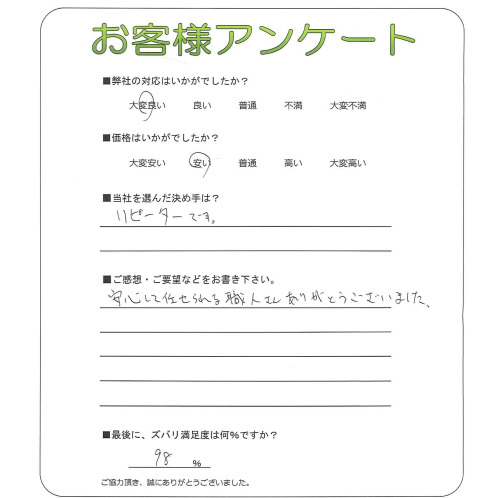 お客様アンケート
■弊社の対応はいかがでしたか？
大変良い 良い 普通 不満 大変不満
■価格はいかがでしたか？
大変安い 安い 普通 高い 大変高い
■当社を選んだ決め手は？
リピーターです。
■ご感想・ご要望などをお書き下さい。
安心して任せられる職人さんありがとうございました。
■最後に、ズバリ満足度は何%ですか？
98 %
ご協力頂き、誠にありがとうございました。